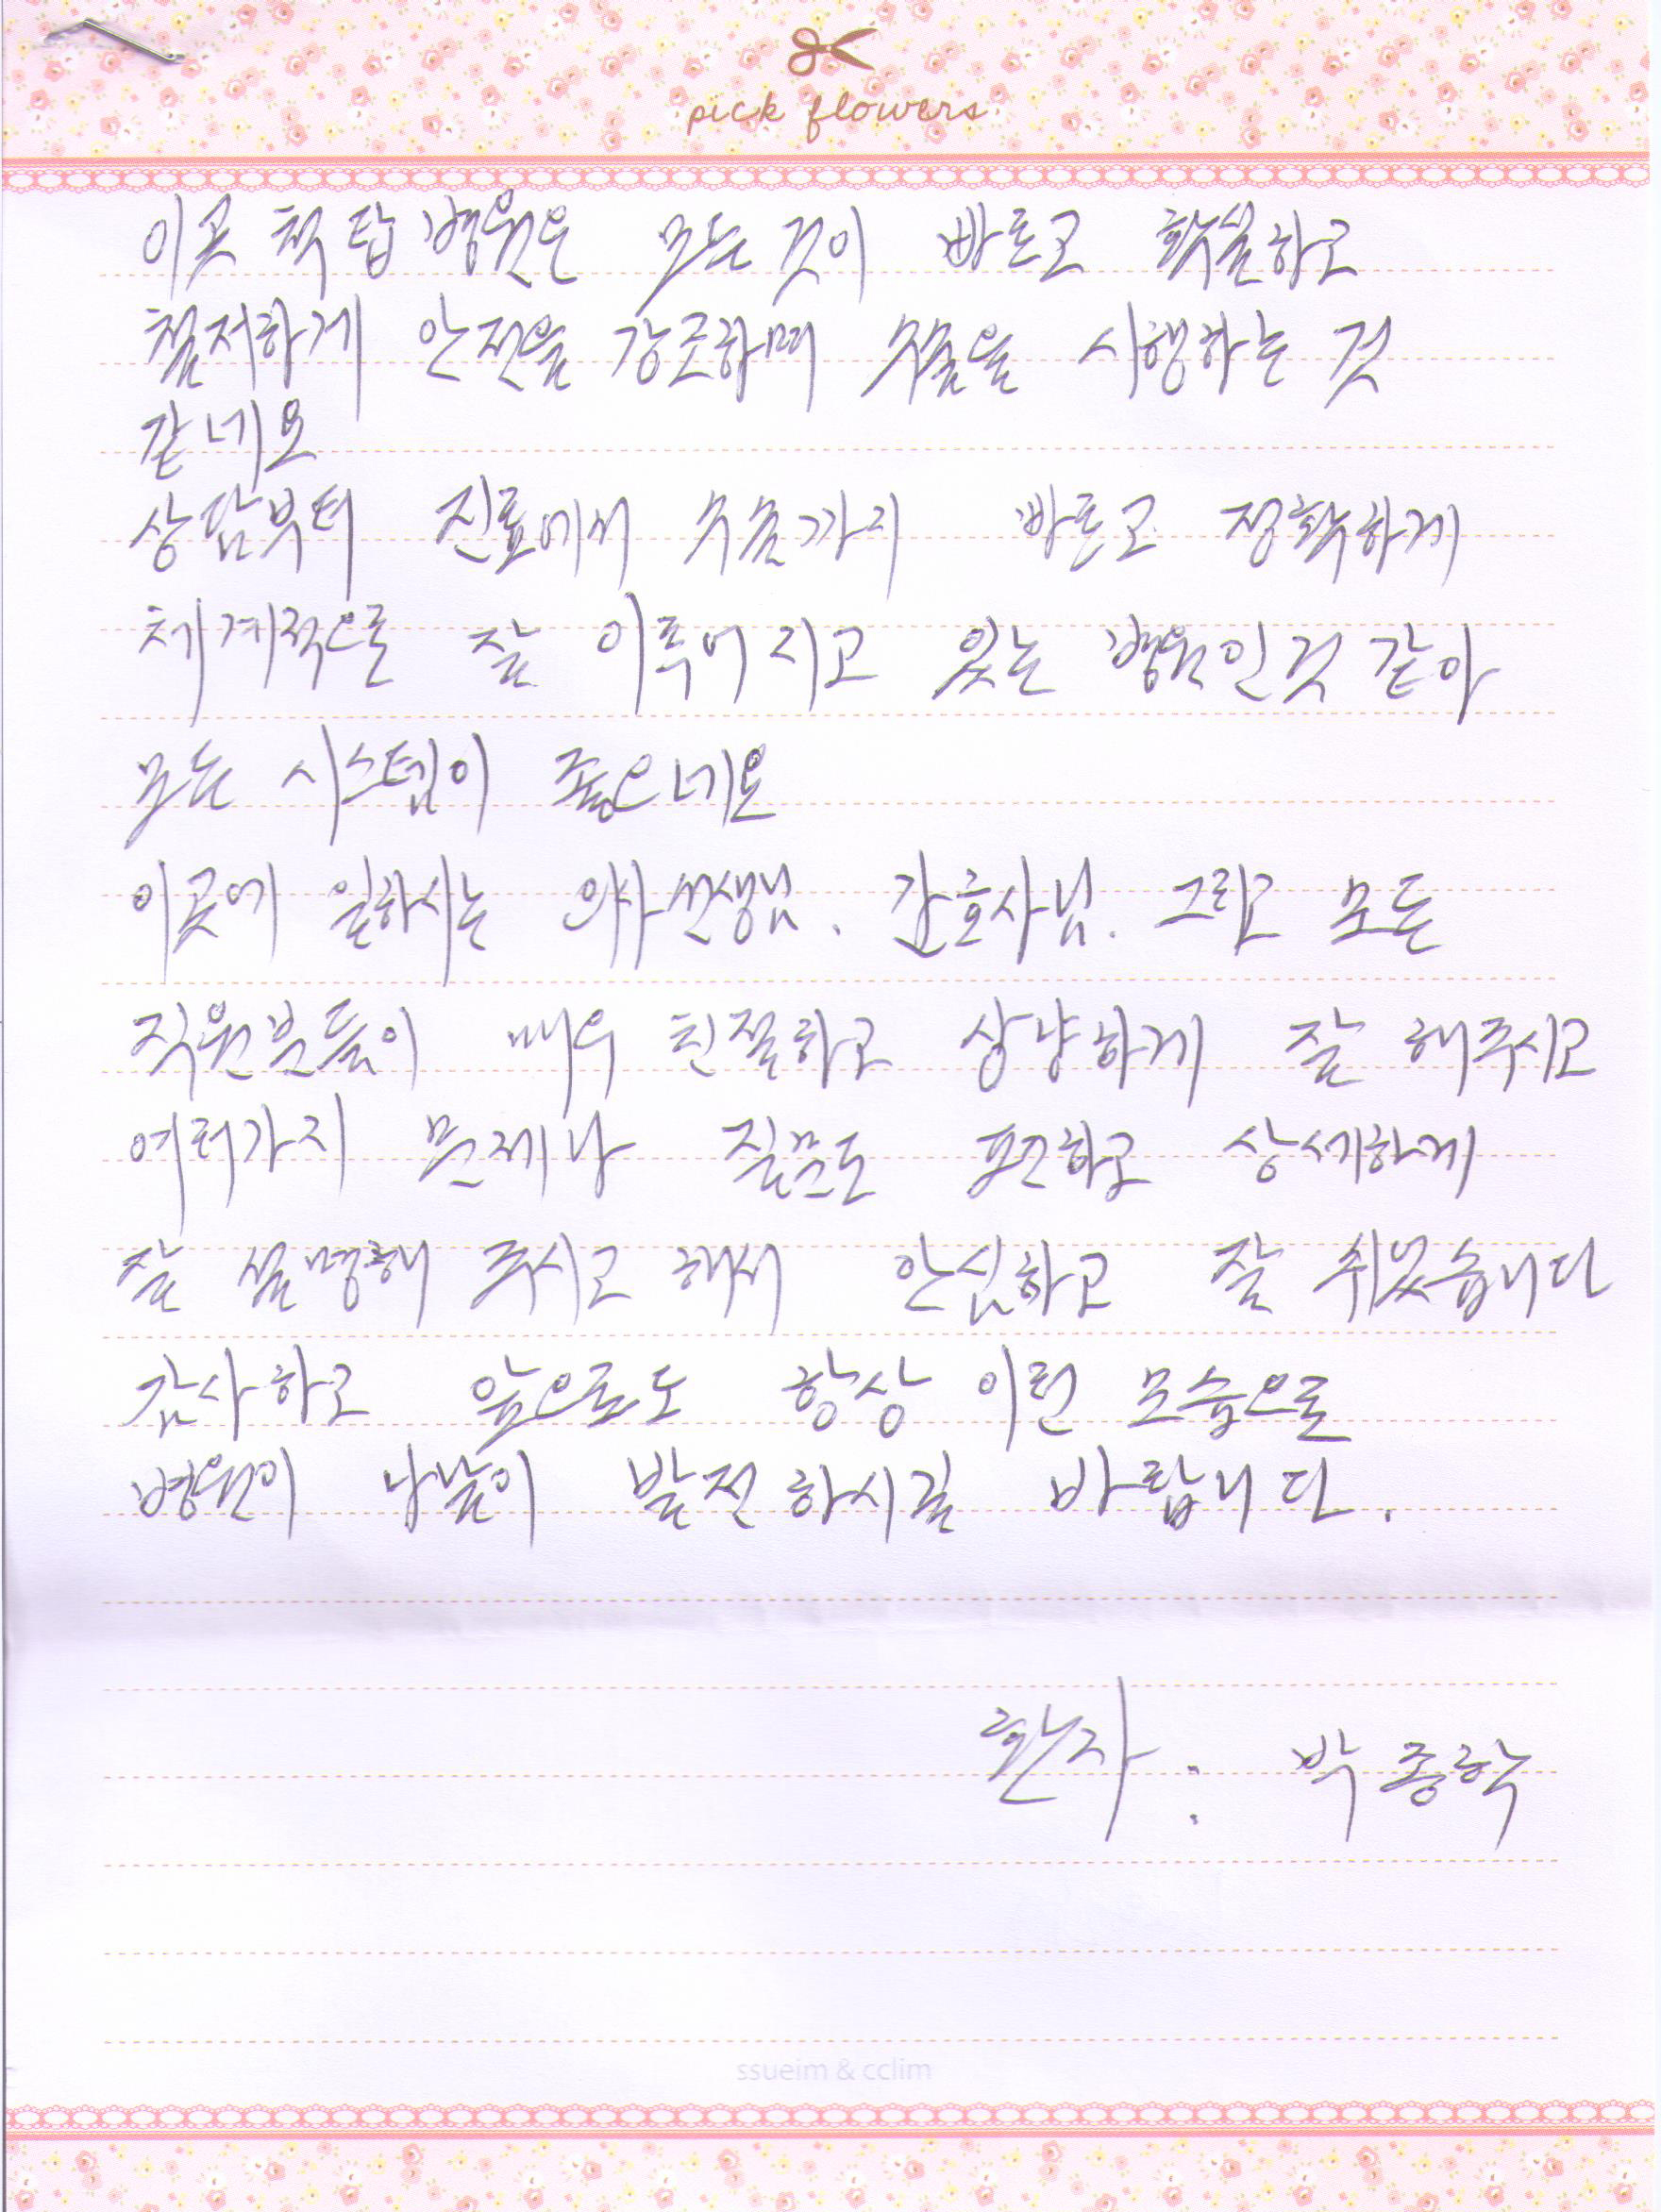 pick flowers
이곳 척탑병원은 모든 것이 빠르고 확실하고
철저하게 안전을 강조하며 수술을 시행하는 것
같네요
상담부터 진료에서 수술까지 빠르고 정확하게
체계적으로 잘 이루어 지고 있는 병원인것 같아
모든 시스템이 좋으네요
이곳에 일하시는 의사선생님. 간호사님. 그리고 모든
직원분들이 매우 친절하고 상냥하게 잘 해주시고
여러가지 문제나 질문도 편하고 상세하게
잘 설명해 주시고 해서 안심하고 잘 쉬었습니다
감사하고 앞으로도 항상 이런 모습으로
병원이 나날이 발전하시길 바랍니다.
환자 : 박종학
ssueim & cclim